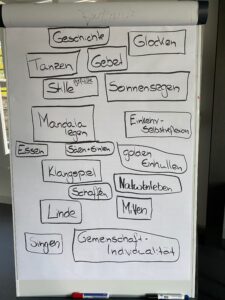 Geschichte
Glocken
Tanzen
Gebet
Stille
Sonnensegen
Mandala
legen
Einkehr-
Selbstreflexion
Essen
Säen + Ernten
golden
Einhüllen
Klangspiel
Schaffen
Naturerleben
Linde
Singen
Gemeinschaft-
Individualität